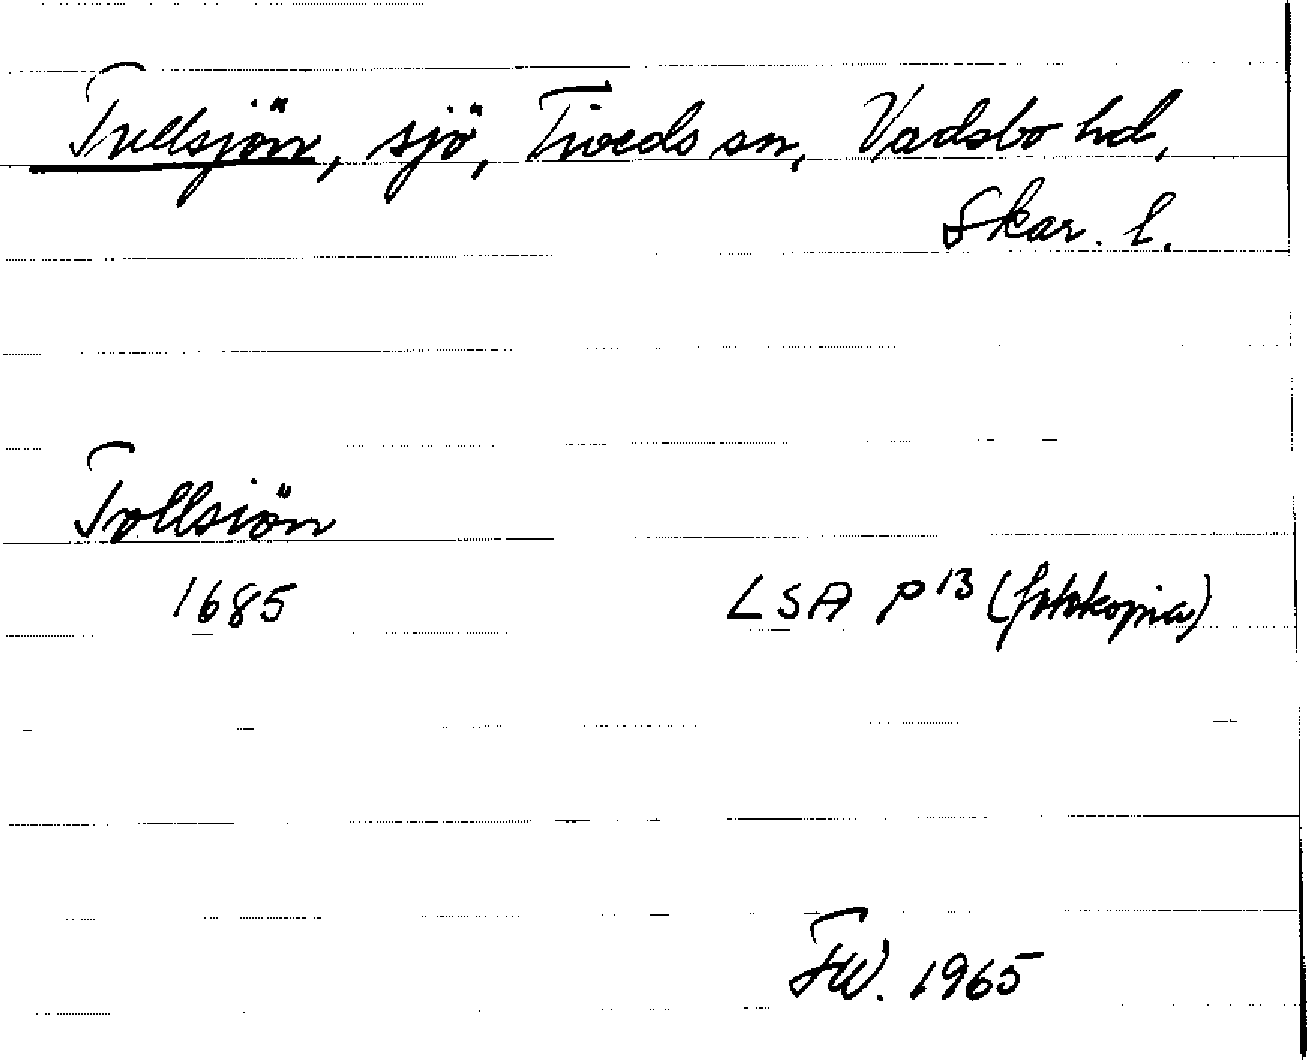 Trollsjön, sjö, Tiveds sn, Vadsbo hd,
Skar. l.
Trollsiön
1685 LSA P 13 (fotokopia)
FW. 1965